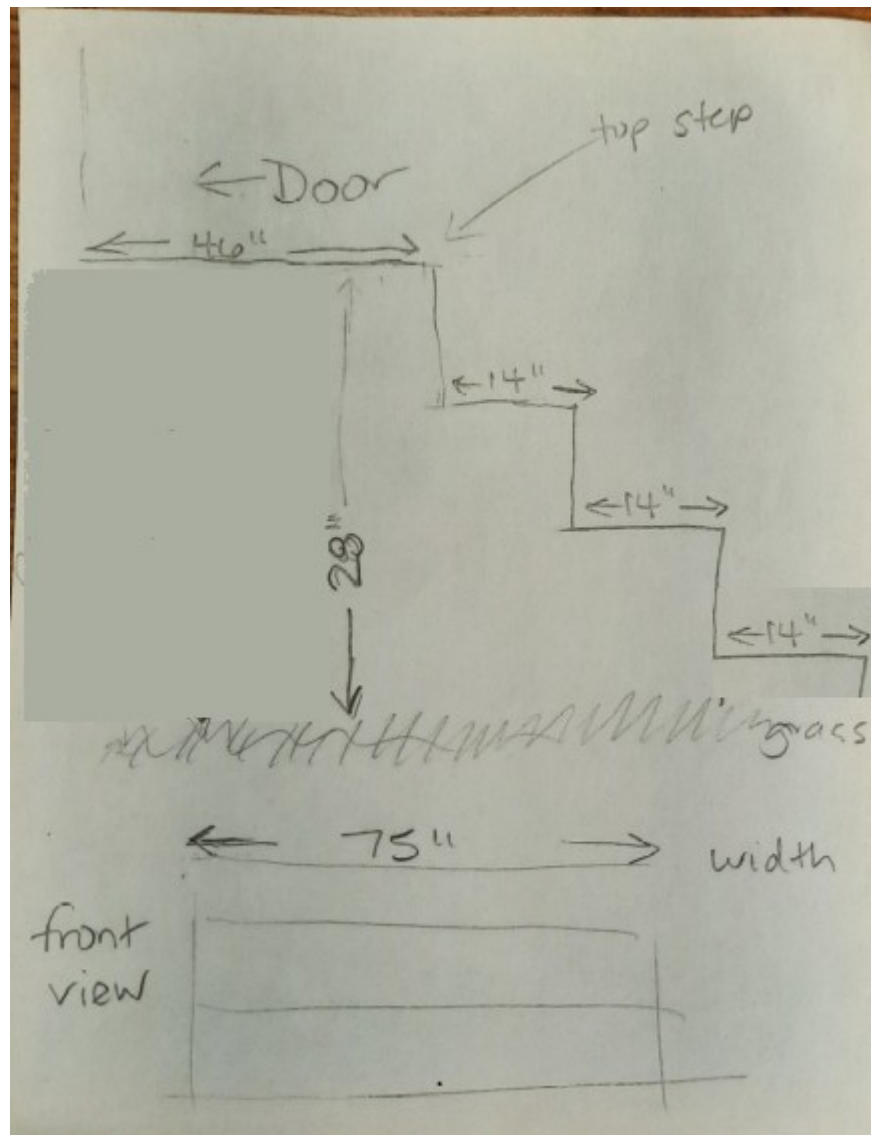 top step
Door
46"
14"
14"
28"
14"
grass
75"
width
front
view